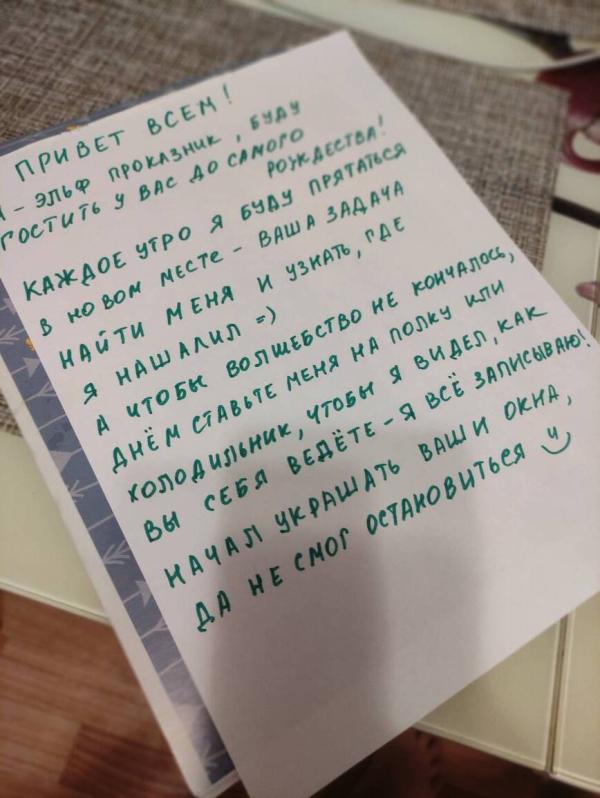 ПРИВЕТ ВСЕМ!
Я - ЭЛЬФ ПРОКАЗНИК, БУДУ
ГОСТИТЬ У ВАС ДО САМОГО
РОЖДЕСТВА!
КАЖДОЕ УТРО Я БУДУ ПРЯТАТЬСЯ
В НОВОМ МЕСТЕ - ВАША ЗАДАЧА
НАЙТИ МЕНЯ И УЗНАТЬ, ГДЕ
Я НАШАЛИЛ =)
А ЧТОБЫ ВОЛШЕБСТВО НЕ КОНЧАЛОСЬ,
ДНЁМ СТАВЬТЕ МЕНЯ НА ПОЛКУ ИЛИ
ХОЛОДИЛЬНИК, ЧТОБЫ Я ВИДЕЛ, КАК
ВЫ СЕБЯ ВЕДЁТЕ - Я ВСЁ ЗАПИСЫВАЮ!
НАЧАЛ УКРАШАТЬ ВАШИ ОКНА,
ДА НЕ СМОГ ОСТАНОВИТЬСЯ